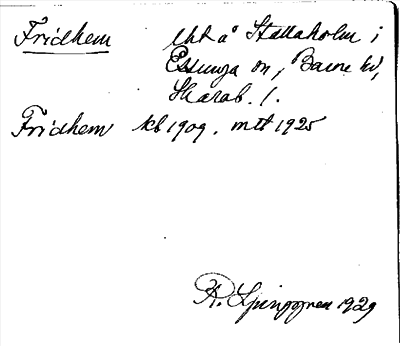 Fridhem lht å Stallaholm i
Essunga sn, Barne hd,
Skarab. l.
Fridhem kb 1909. mtl 1925
R. Ljunggren 1929